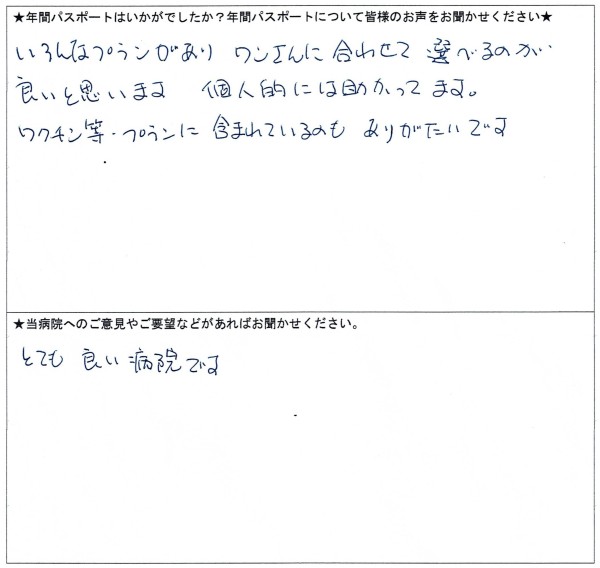 ★年間パスポートはいかがでしたか？年間パスポートについて皆様のお声をお聞かせください★
いろんなプランがあり ワンさんに 合わせて 選べるのが
良いと思います 個人的には助かってます。
ワクチン等・プランに 含まれているのも ありがたいです
★当病院へのご意見やご要望などがあればお聞かせください。
とても 良い 病院です